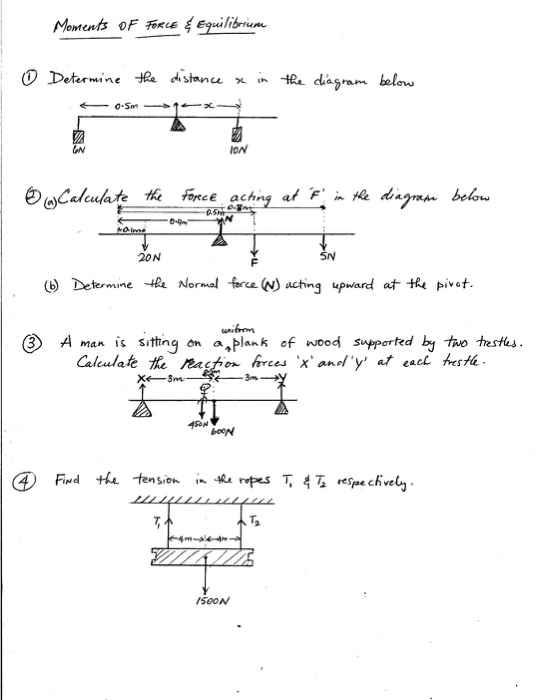 Moments OF FORCE & Equilibrium
① Determine the distance x in the diagram below
0.5m x
6N 10N
② (a) Calculate the FORCE acting at 'F' in the diagram below
0.8m
0.5m
0.4m N
0.1m
20N F 5N
(b) Determine the Normal force (N) acting upward at the pivot.
uniform
③ A man is sitting on a plank of wood supported by two trestles.
Calculate the reaction forces 'x' and 'y' at each trestle.
X 3m 3m Y
450N
600N
④ FIND the tension in the ropes T₁ & T₂ respectively.
T₁ T₂
4m 4m
1500N